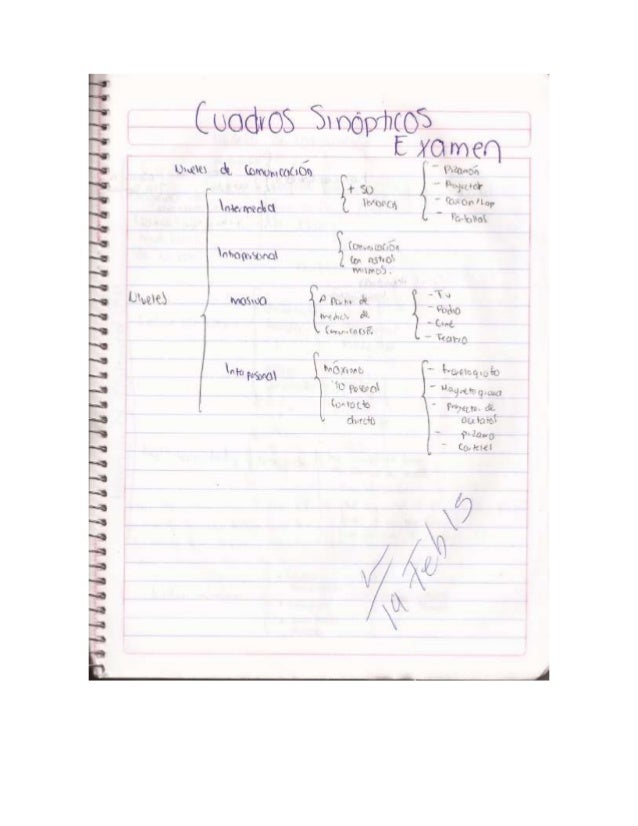 Cuadros Sinópticos
Examen
Niveles de Comunicación
Niveles
Intermedia
+ 50
Personas
- Pizarrón
- Proyector
- Cañon/Lap
- Pantallas
Intrapersonal
Comunicación
con
mismos.
masiva
A Partir de
medios de
- Tv
- Radio
- Cine
- Teatro
máximo
10
Contacto
directo
- Proyector de
acetatos
-
- Carteles
19 Feb 15